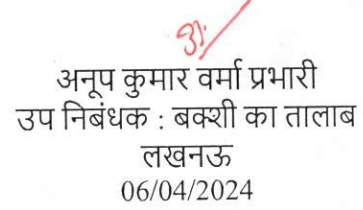 अनूप कुमार वर्मा प्रभारी
उप निबंधक : बक्शी का तालाब
लखनऊ
06/04/2024